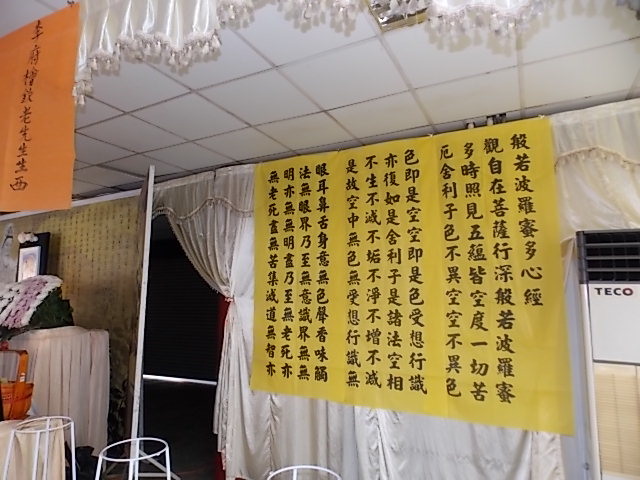 般若波羅蜜多心經
觀自在菩薩行深般若波羅蜜
多時照見五蘊皆空度一切苦
厄舍利子色不異空空不異色
色即是空空即是色受想行識
亦復如是舍利子是諸法空相
不生不滅不垢不淨不增不減
是故空中無色無受想行識無
眼耳鼻舌身意無色聲香味觸
法無眼界乃至無意識界無無
明亦無無明盡乃至無老死亦
無老死盡無苦集滅道無智亦
TECO
府檀 老先生生西